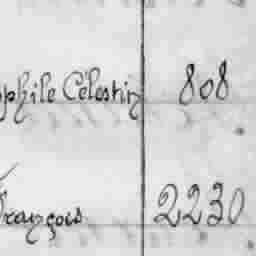 ophile Célestin 808
François 2230